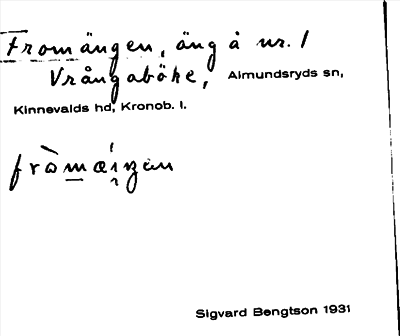 Fromängen, äng å nr. 1
Vrångaböke, Almundsryds sn,
Kinnevalds hd, Kronob. l.
Sigvard Bengtson 1931